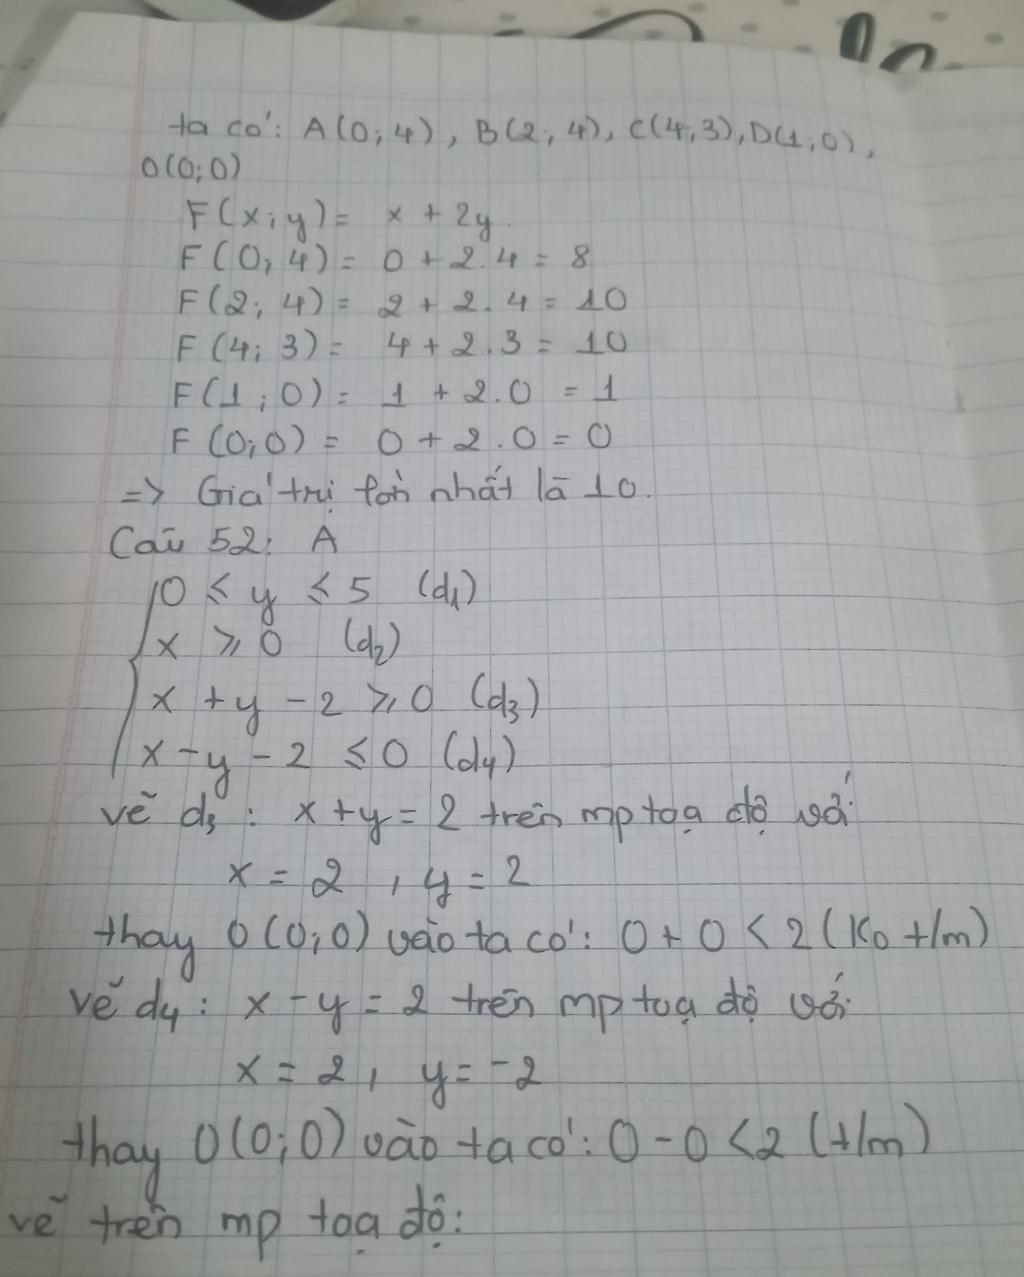 ta có: A(0;4), B(2;4), C(4;3), D(1;0),
O(0;0)
F(x;y) = x + 2y.
F(0;4) = 0 + 2.4 = 8
F(2;4) = 2 + 2.4 = 10
F(4;3) = 4 + 2.3 = 10
F(1;0) = 1 + 2.0 = 1
F(0;0) = 0 + 2.0 = 0
=> Giá trị lớn nhất là 10.
Câu 52: A
0 ≤ y ≤ 5 (d₁)
x ≥ 0 (d₂)
x + y - 2 ≥ 0 (d₃)
x - y - 2 ≤ 0 (d₄)
vẽ d₃ : x + y = 2 trên mp toạ độ với
x = 2 , y = 2
thay O(0;0) vào ta có: 0 + 0 < 2 (Ko t/m)
vẽ d₄ : x - y = 2 trên mp toạ độ với
x = 2 , y = -2
thay O(0;0) vào ta có: 0 - 0 < 2 (t/m)
vẽ trên mp toạ độ: